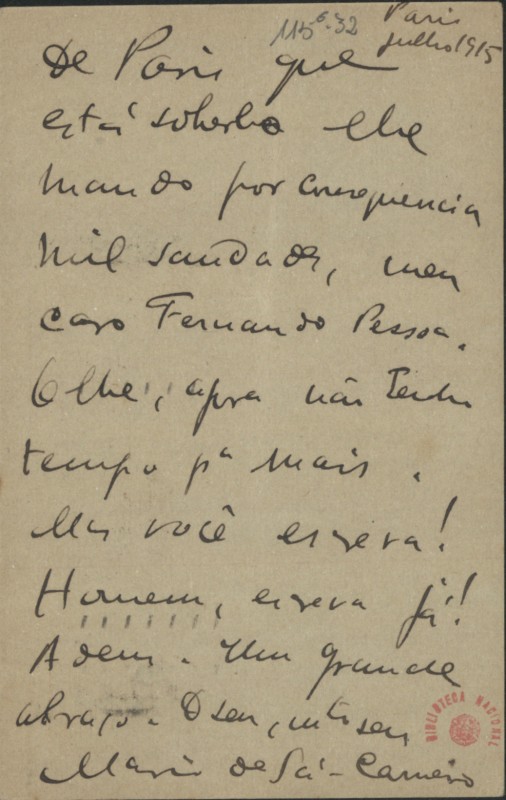 115⁶-32
Paris
julho 1915
De Paris que
está soberbo lhe
mando por consequencia
mil saudades, meu
caro Fernando Pessoa.
Olhe, agora não tenho
tempo pª mais.
Mas você escreva!
Homem, escreva já!
Adeus. Um grande
abraço. O seu, mto seu
Mario de Sá-Carneiro
BIBLIOTECA NACIONAL